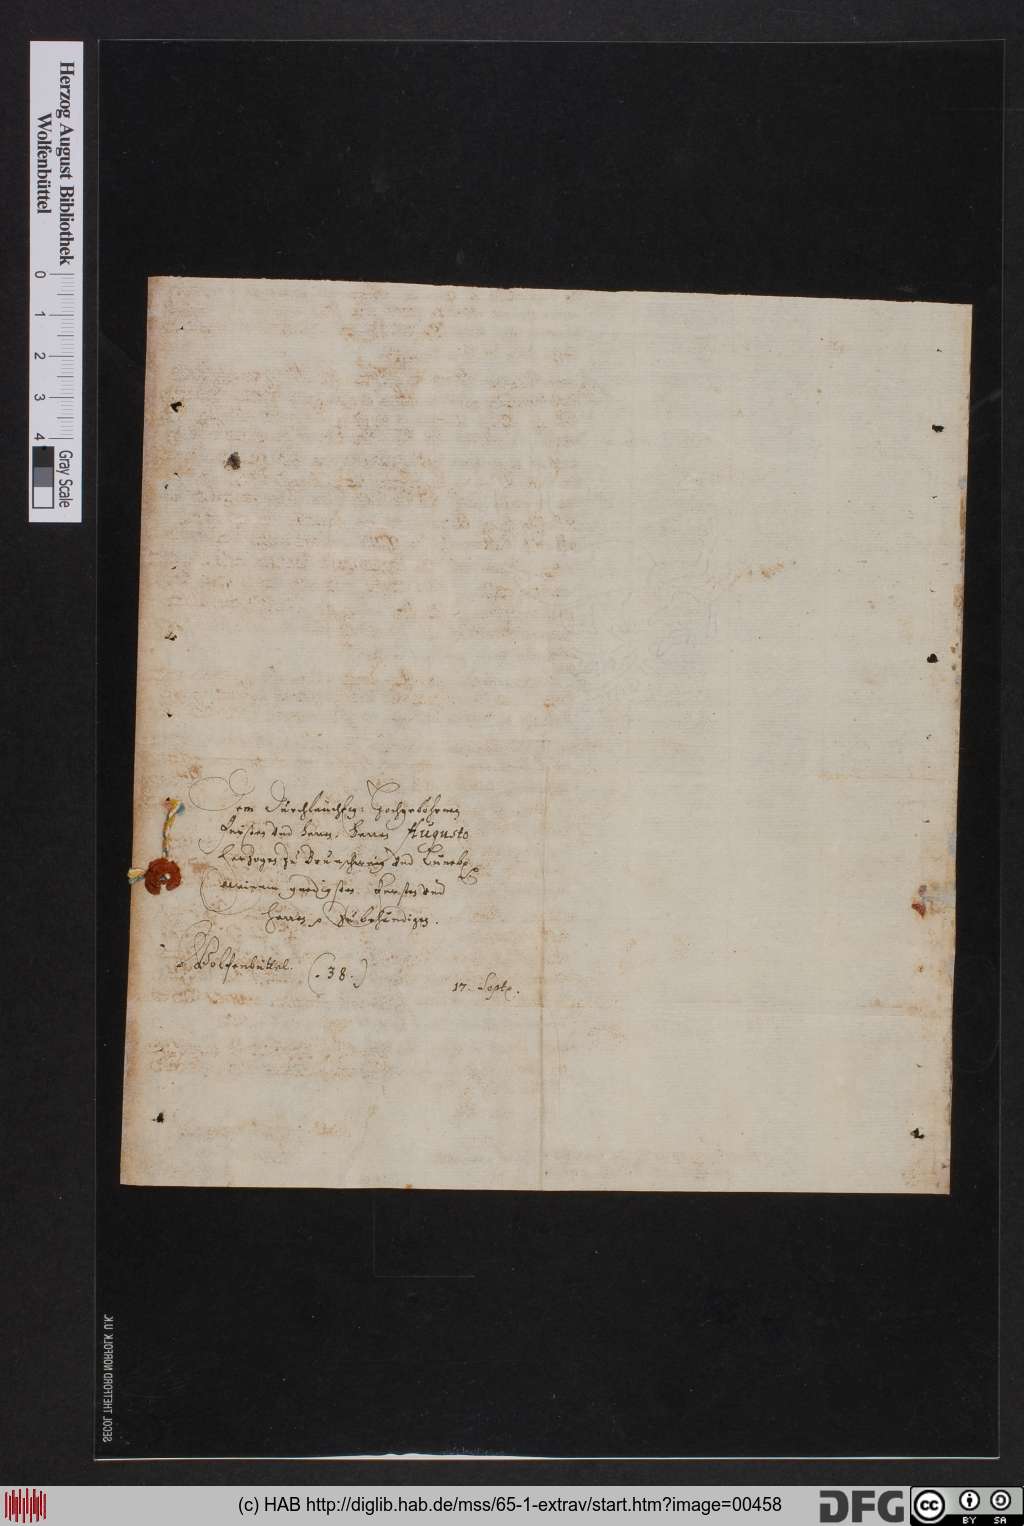 Herzog August Bibliothek
Wolfenbüttel
0 1 2 3 4
Gray Scale
Dem Durchleuchtig: Hochgebohrnen
Fursten und Herrn, Herrn Augusto
Hertzogen zu Braunschweig und Luneb
Meinem gnedigsten Fursten und
Herrn, zu behendigen.
Wolfenbüttel.
(.38.)
17. Sept.
SECOL THETFORD NORFOLK U.K.
(c) HAB http://diglib.hab.de/mss/65-1-extrav/start.htm?image=00458
DFG
cc
BY SA